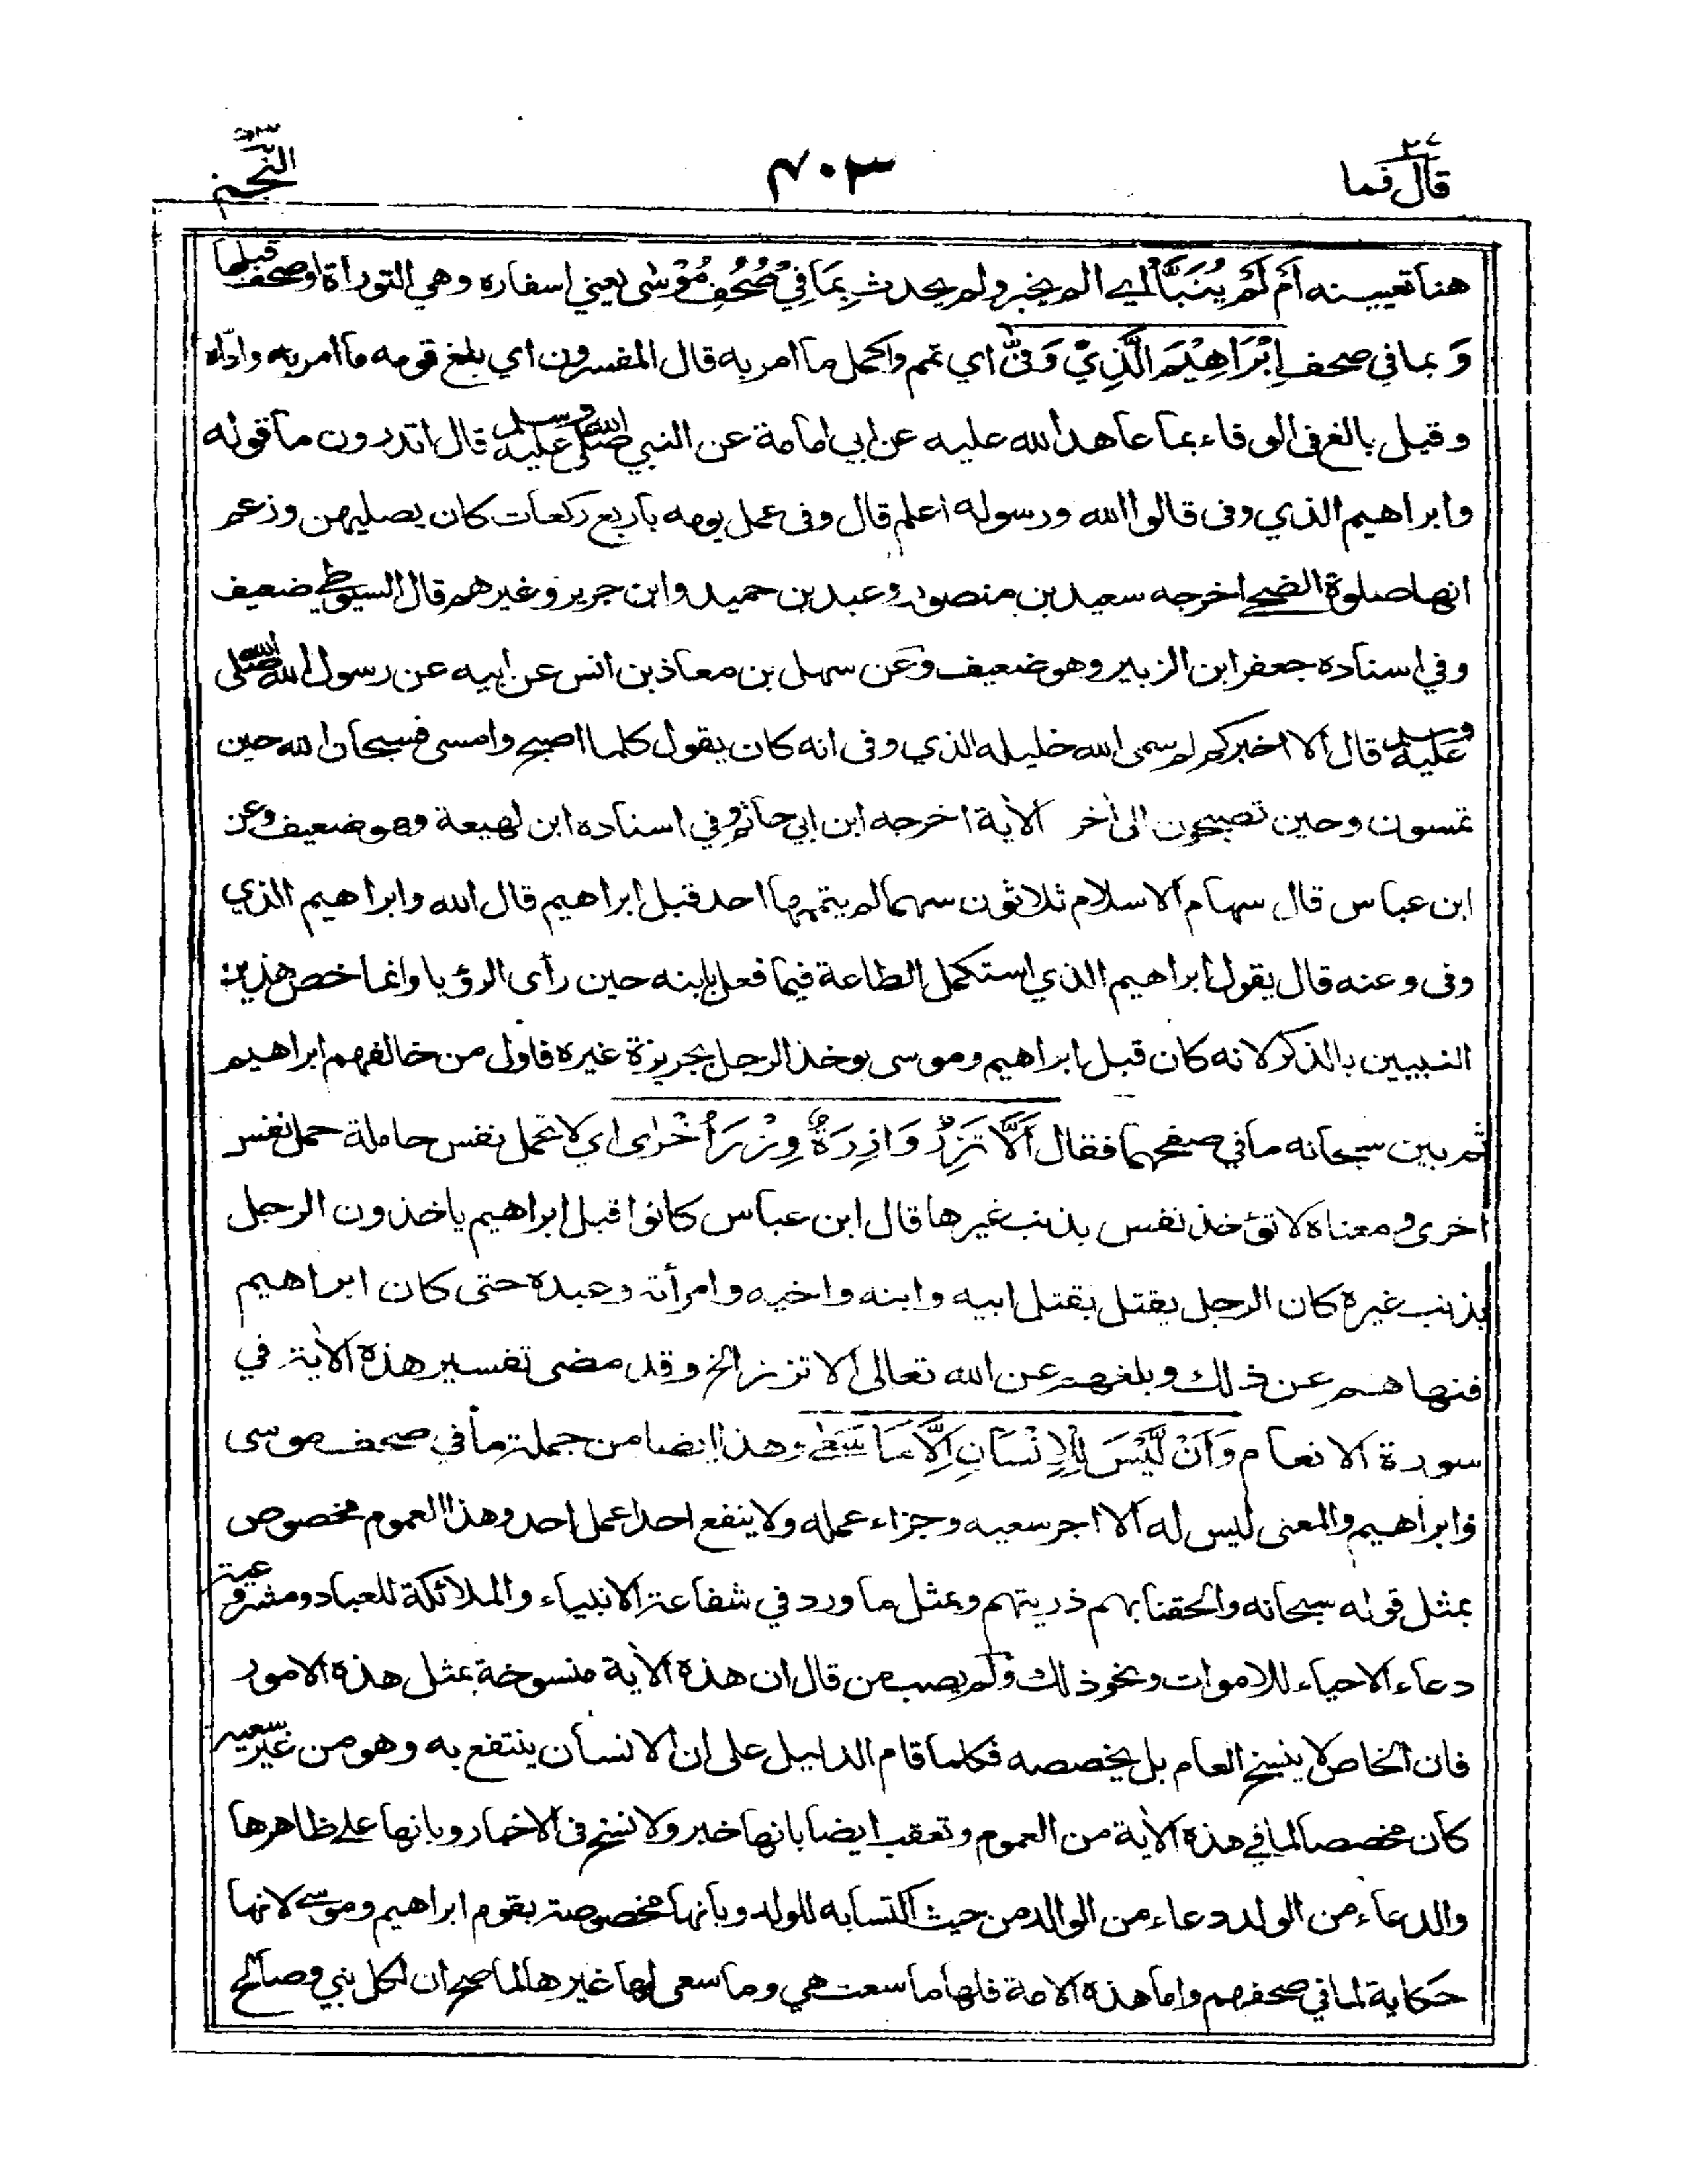 قال فما ٢٧
٤٠٣
النجم ٥٣
هنا تعيينه اَمْ لَمْ يُنَبَّأْ اي الم يخبر ولم يحدث بِمَا فِيْ صُحُفِ مُوْسٰى يعني اسفاره وهي التوراة او صحف قبلها
وَ بما في صحف اِبْرَاهِيْمَ الَّذِيْ وَفّٰى اي تمم واكمل ما امر به قال المفسرون اي بلغ قومه ما امر به واداه
وقيل بالغ فى الوفاء بما عاهد الله عليه عن ابي امامة عن النبي صلى الله عليه وسلم قال اتدرون ما قوله
وابراهيم الذي وفى قالوا الله ورسوله اعلم قال وفى عمل يومه باربع ركعات كان يصليهن وزعم
انها صلوة الضحى اخرجه سعيد بن منصور وعبد بن حميد وابن جرير وغيرهم قال السيوطي ضعيف
وفي اسناده جعفر ابن الزبير وهو ضعيف وعن سهل بن معاذ بن انس عن ابيه عن رسول الله صلى الله
عليه وسلم قال الا اخبركم لم سمى الله خليله الذي وفى انه كان يقول كلما اصبح وامسى فسبحان الله حين
تمسون وحين تصبحون الى اٰخر الاٰية اخرجه ابن ابي حاتم وفي اسناده ابن لهيعة وهو ضعيف وعن
ابن عباس قال سهام الاسلام ثلاثون سهما لم يتممها احد قبل ابراهيم قال الله وابراهيم الذي
وفى وعنه قال يقول ابراهيم الذي استكمل الطاعة فيما فعل بابنه حين رأى الرؤيا وانما خص هذين
النبيين بالذكر لانه كان قبل ابراهيم وموسى يوخذ الرجل بجريرة غيره فاول من خالفهم ابراهيم
ثم بين سبحانه ما في صحفهما فقال اَلَّا تَزِرُ وَازِرَةٌ وِزْرَ اُخْرٰى اي لا تحمل نفس حاملة حمل نفس
اخرى ومعناه لا تؤخذ نفس بذنب غيرها قال ابن عباس كانوا قبل ابراهيم ياخذون الرجل
بذنب غيره كان الرجل يقتل بقتل ابيه وابنه واخيه وامرأته وعبده حتى كان ابراهيم
فنهاهم عن ذلك وبلغهم عن الله تعالى الا تزر الخ وقد مضى تفسير هذه الاٰية في
سورة الانعام وَاَنْ لَّيْسَ لِلْاِنْسَانِ اِلَّا مَا سَعٰى وهذا ايضا من جملة ما في صحف موسى
وابراهيم والمعنى ليس له الا اجر سعيه وجزاء عمله ولا ينفع احدا عمل احد وهذا العموم مخصوص
بمثل قوله سبحانه والحقنا بهم ذريتهم وبمثل ما ورد في شفاعة الانبياء والملائكة للعباد ومشروعية
دعاء الاحياء للاموات ونحو ذلك ولم يصب من قال ان هذه الاٰية منسوخة بمثل هذه الامور
فان الخاص لا ينسخ العام بل يخصصه فكلما قام الدليل على ان الانسان ينتفع به وهو من غير سعيه
كان مخصصا لما في هذه الاٰية من العموم وتعقب ايضا بانها خبر ولا نسخ فى الاخبار وبانها على ظاهرها
والدعاء من الولد دعاء من الوالد من حيث اكتسابه للولد وبانها مخصوصة بقوم ابراهيم وموسى لانها
حكاية لما في صحفهم واما هذه الامة فلها ما سعت هي وما سعى لها غيرها لما صح ان لكل نبي وصالح